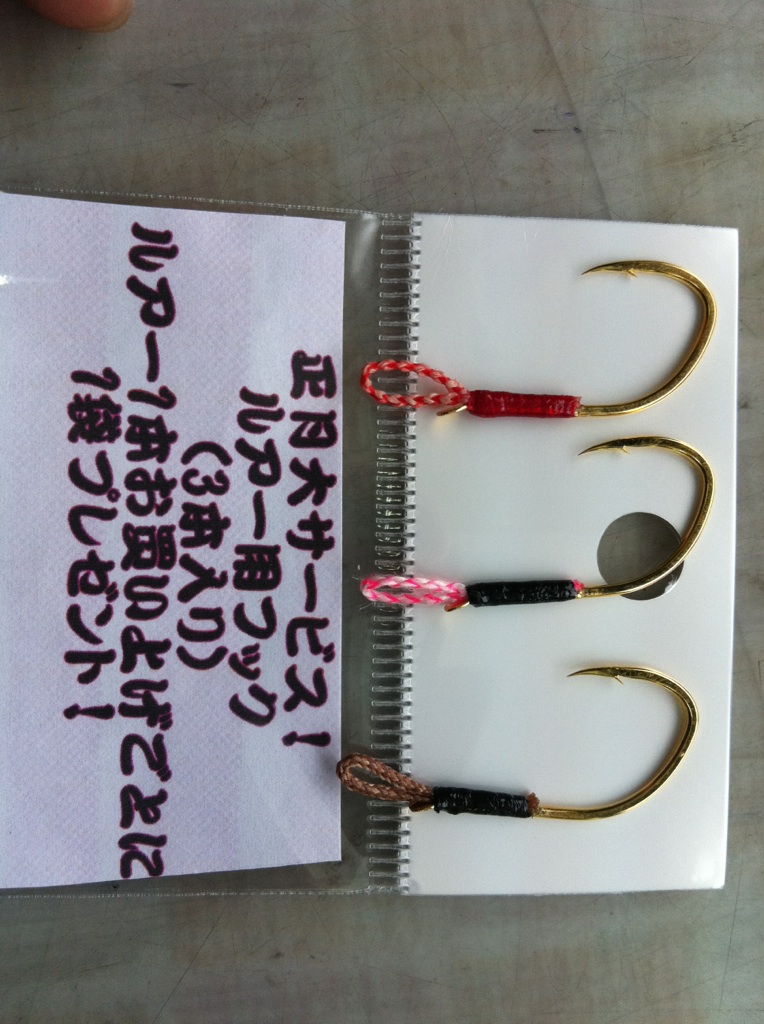 正月大サービス！
ルアー用フック
(3本入り)
ルアー1本お買い上げごとに
1袋プレゼント！